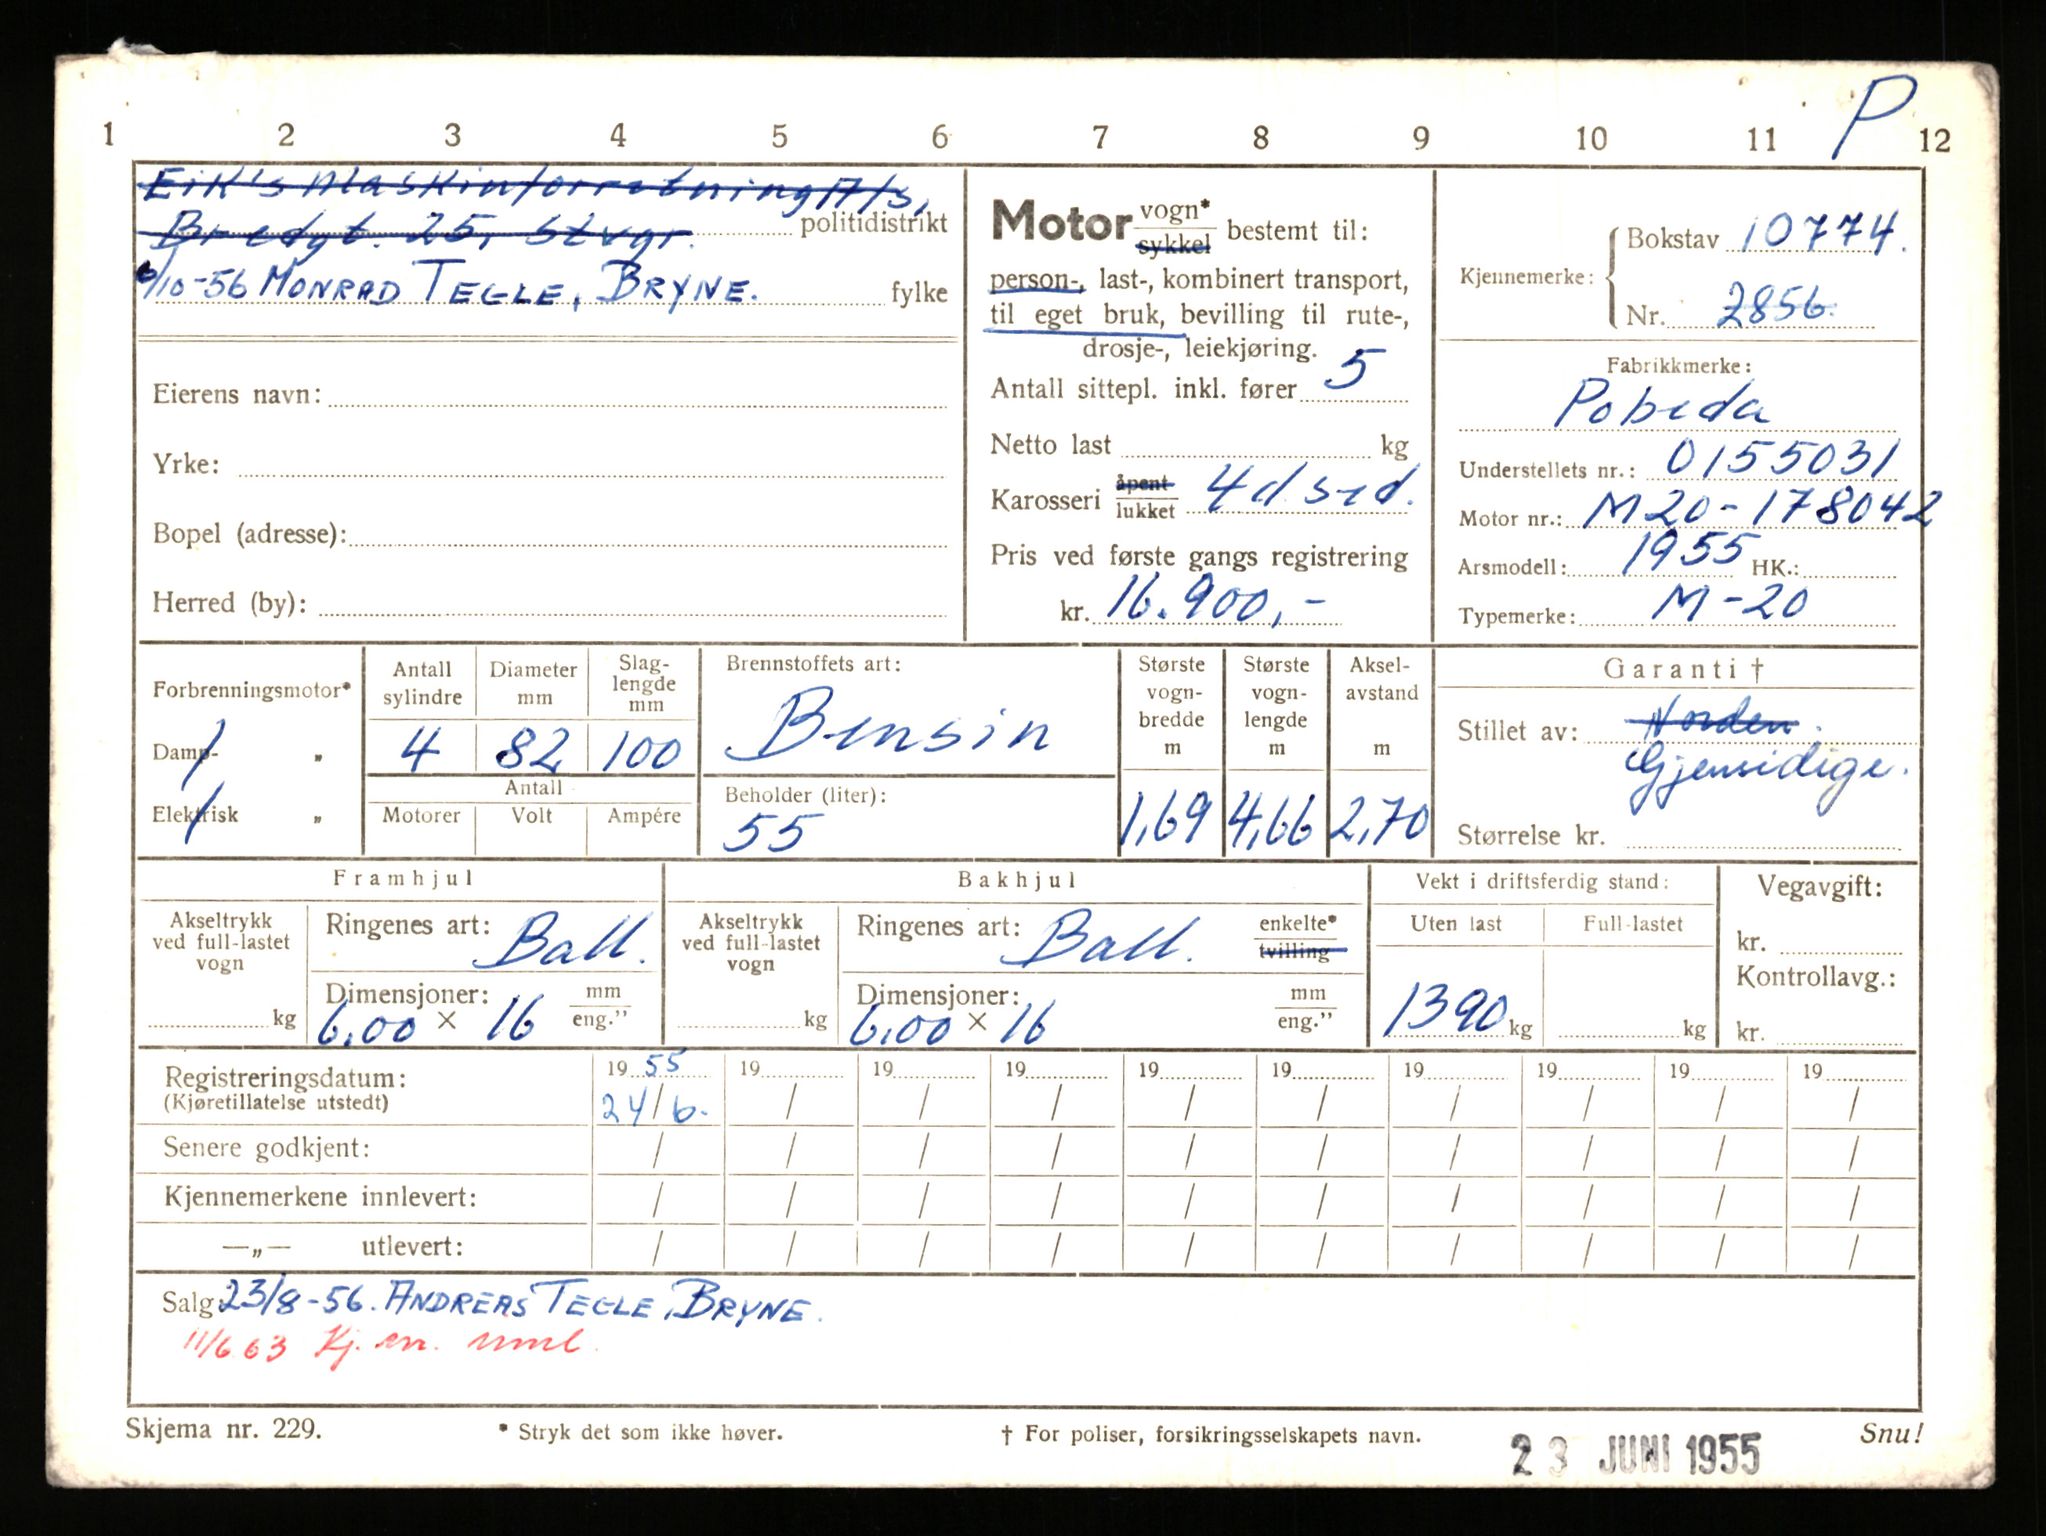 P
1 2 3 4 5 6 7 8 9 10 11 12
Eik's Maskinforretning A/S,
Bredgt. 25, Stvgr. politidistrikt
6/10-56 MONRAD TEGLE, BRYNE. fylke
Eierens navn:
Yrke:
Bopel (adresse):
Herred (by):
Motor vogn* sykkel bestemt til:
person-, last-, kombinert transport,
til eget bruk, bevilling til rute-,
drosje-, leiekjøring.
Antall sittepl. inkl. fører 5
Netto last kg
Karosseri åpent lukket 4d sed.
Pris ved første gangs registrering
kr. 16.900,-
Kjennemerke:
Bokstav 10774.
Nr. 2856.
Fabrikkmerke:
Pobeda
Understellets nr.: 0155031
Motor nr.: M20-178042
Arsmodell: 1955 HK.:
Typemerke: M-20
Forbrenningsmotor*
Damp- "
Elektrisk "
Antall sylindre
4
Diameter mm
82
Slag-lengde mm
100
Antall
Motorer Volt Ampére
Brennstoffets art:
Bensin
Beholder (liter):
55
Største vogn-bredde m
1,69
Største vogn-lengde m
4,66
Aksel-avstand m
2,70
Garanti †
Stillet av: Norden.
Gjensidige.
Størrelse kr.
Framhjul
Akseltrykk ved full-lastet vogn
kg
Ringenes art: Ball.
Dimensjoner: mm eng."
6.00 × 16
Bakhjul
Akseltrykk ved full-lastet vogn
kg
Ringenes art: Ball. enkelte* tvilling
Dimensjoner: mm eng."
6.00 × 16
Vekt i driftsferdig stand:
Uten last Full-lastet
1390 kg kg
Vegavgift:
kr.
Kontrollavg.:
kr.
Registreringsdatum: 19 55 19 19 19 19 19 19 19 19 19
(Kjøretillatelse utstedt) 24/6. / / / / / / / / /
Senere godkjent: / / / / / / / / / /
Kjennemerkene innlevert: / / / / / / / / / /
—„— utlevert: / / / / / / / / / /
Salg: 23/8-56. ANDREAS TEGLE, BRYNE.
11/6.63 Kj. m. innl.
Skjema nr. 229. * Stryk det som ikke høver. † For poliser, forsikringsselskapets navn. Snu!
23 JUNI 1955